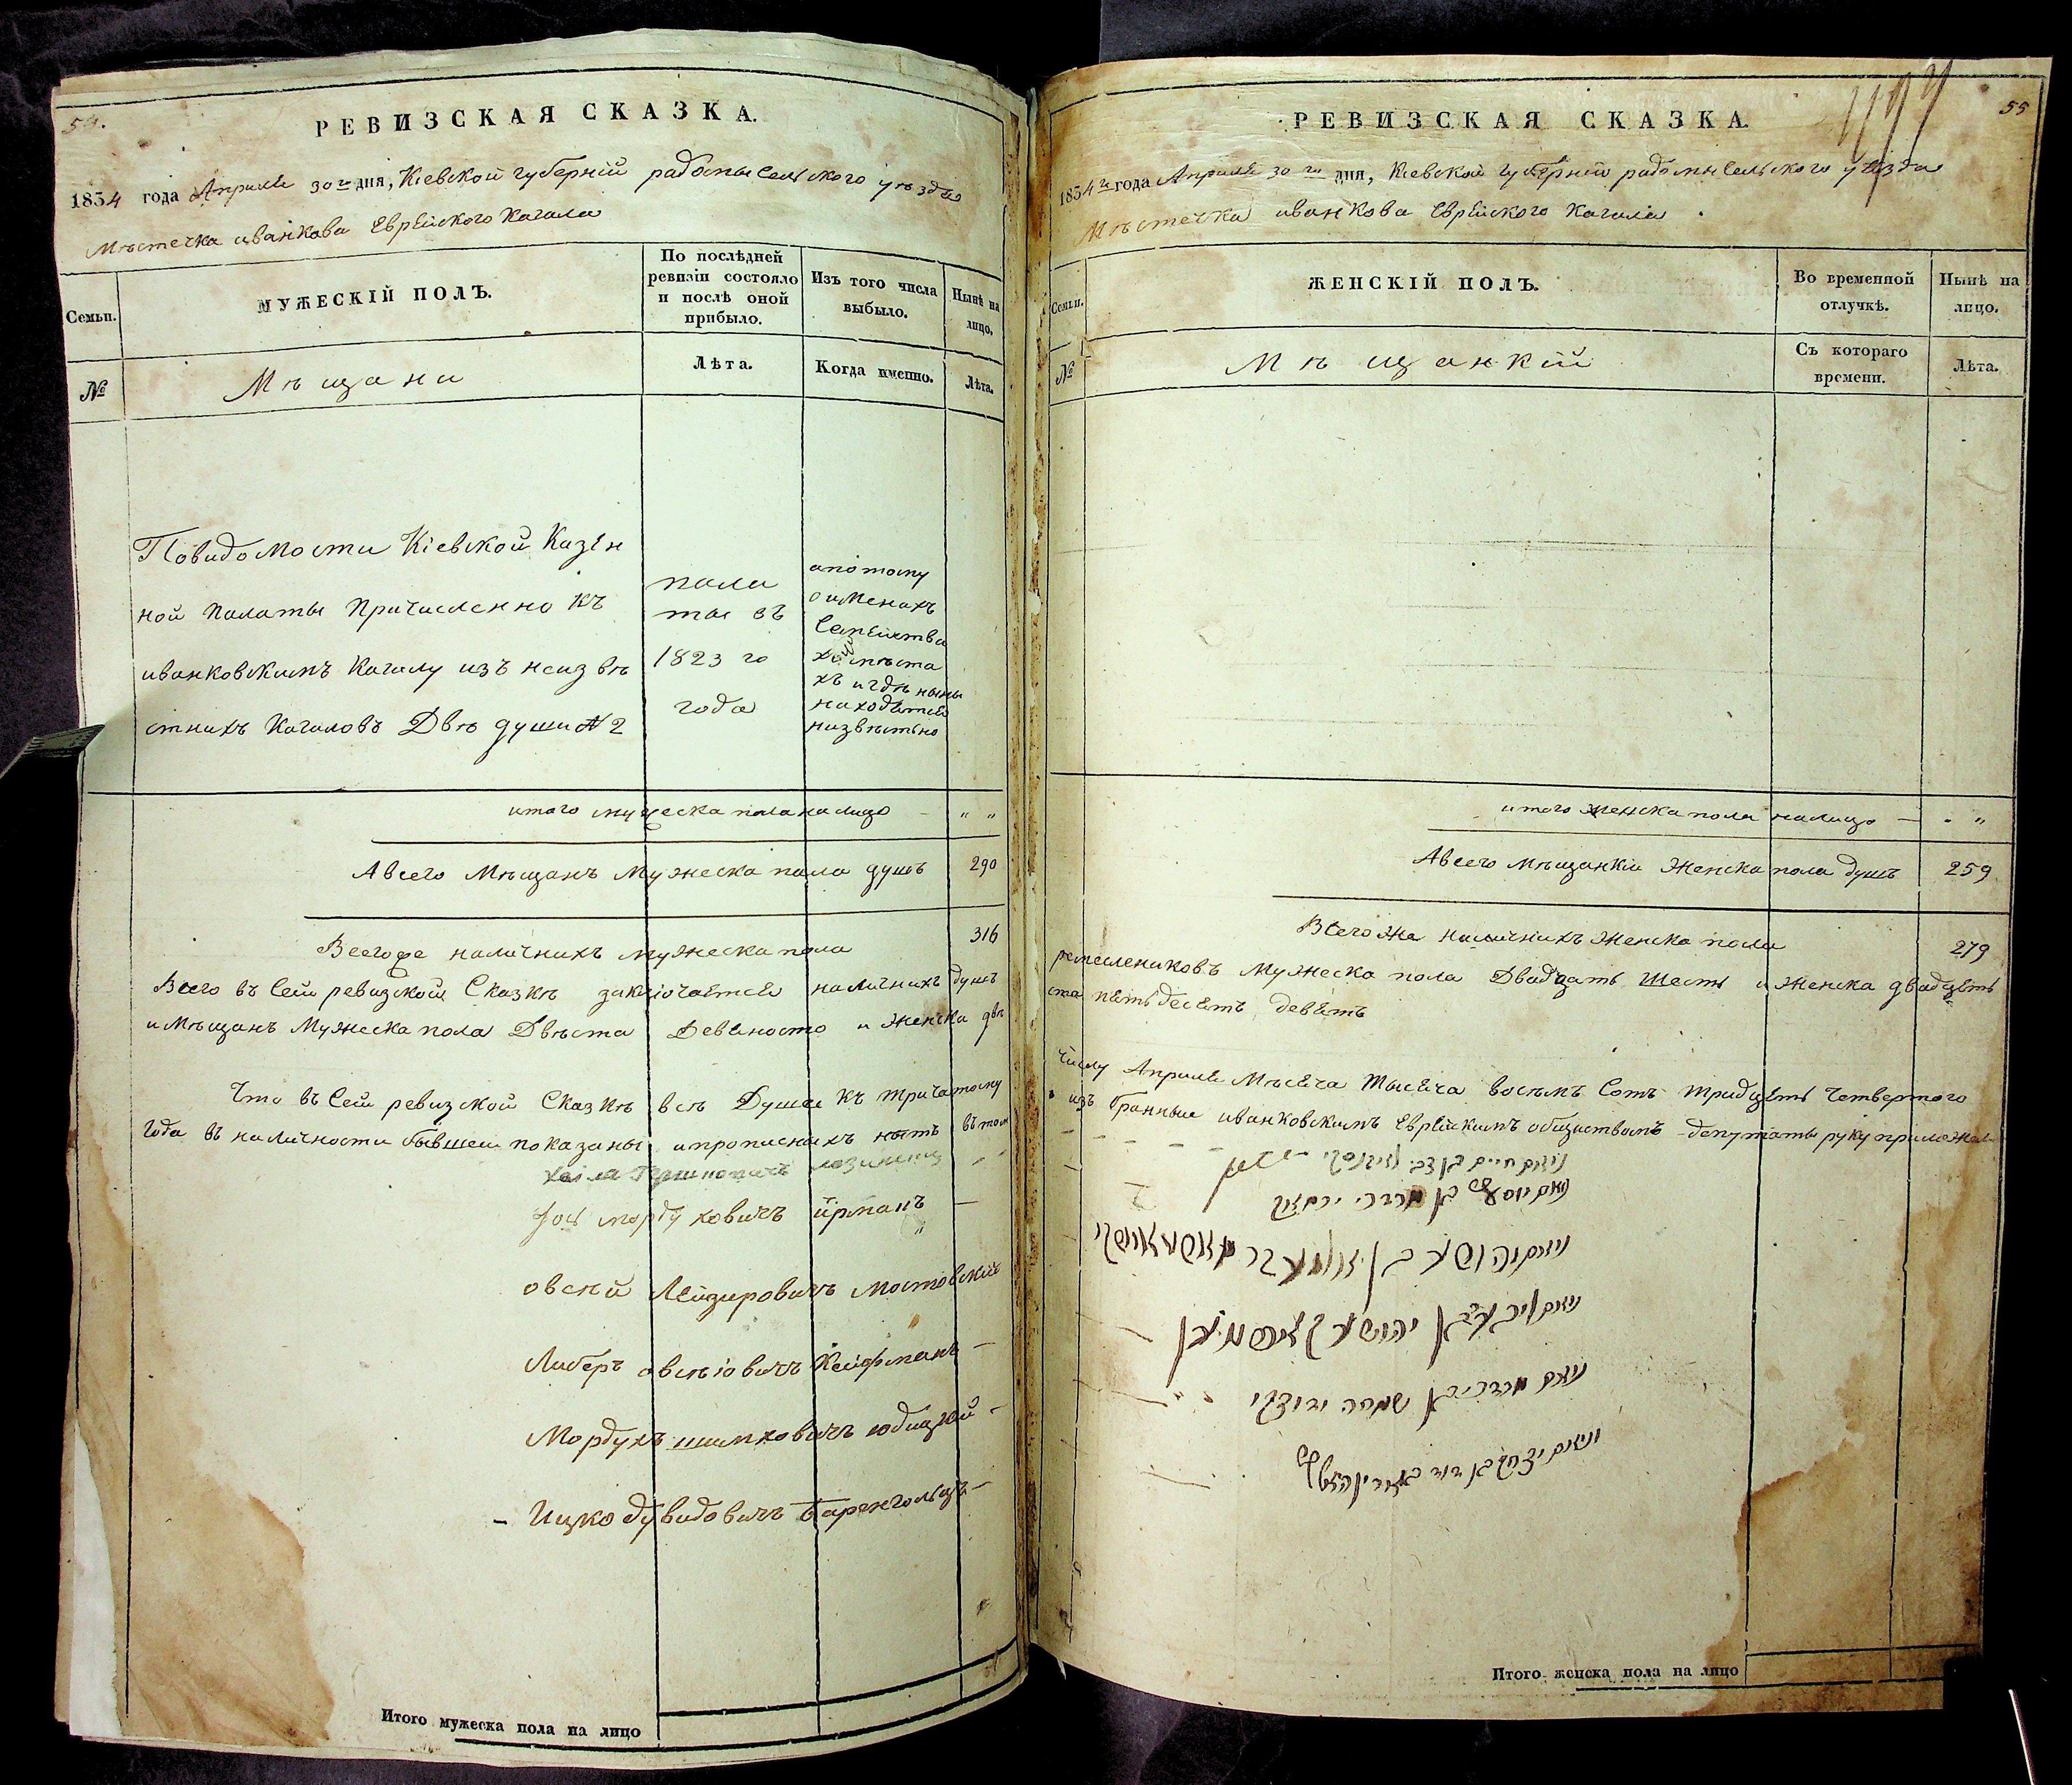 54.
РЕВИЗСКАЯ СКАЗКА.
1834 года Апреля 30го дня, Кіевской губерній радомысельского уезда
Мѣстечка иванкова Еврейского Кагала
Семьи.
МУЖЕСКІЙ ПОЛЪ.
По послѣдней ревизіи состояло и послѣ оной прибыло.
Изъ того числа выбыло.
Нынѣ на лицо.
№
Мѣщани
Лѣта.
Когда именно.
Лѣта.
Повидомости Кіевской Казен
ной палаты Причисленно къ
иванковскимъ Кагалу изъ неизвѣ
стнихъ Кагаловъ Двѣ души № 2
пала
ты въ
1823 го
года
апотому
оименахъ
Семейства
хъ и гдѣ ныны
находятся
низвѣстно
итого мужеска пола на лицо - " "
Авсего Мѣщанъ Мужеска пола душъ 290
Всегоже наличнихъ мужеска пола 316
Всего въ Сей ревизской Сказкѣ заключается наличнихъ душъ
и Мѣщанъ Мужеска пола Двѣста Девяносто и Женска двѣ
Что въ Сей ревизской Сказкѣ всѣ Души къ тричатому
года въ наличности бывшеи показаны ипрописнихъ нытъ въ том
Іось мордуховичъ ирманъ -
овсѣй Лейзировичъ мостовский
Либеръ овсѣіовичъ Кейфманъ -
Мордухъ шимховичъ юдицкій -
- Ицко дувидовичъ Баренгольцъ -
Итого мужеска пола на лицо
55
РЕВИЗСКАЯ СКАЗКА.
1834го года Апреля 30го дня, Кіевской губерній радомысельского уезда
Мѣстечка иванкова Еврейского Кагала
Семьи.
ЖЕНСКІЙ ПОЛЪ.
Во временной отлучкѣ.
Нынѣ на лицо.
№
Мѣщанкій
Съ котораго времени.
Лѣта.
итого Женска пола налицо - " "
Авсего мѣщанкій Женска пола душъ 259
Всегоже наличнихъ Женска пола 279
ремеслениковъ Мужеска пола Двадцать Шесть и Женска двадцять
ста пятьдесятъ девять
числу Апреля Мѣсяча Тысяча восемъ Сотъ тридцять четвертого
изъ бранные иванковскимъ Еврейскимъ обществомъ депутаты руку приложил
נאום יוסף בן מרדכי ירמאן
נאום יהושע בן אלעזר מאסטאווסקי
נאום מרדכי בן שמחה יודיצקי
נאום יצחק בן דוד
Итого женска пола на лицо